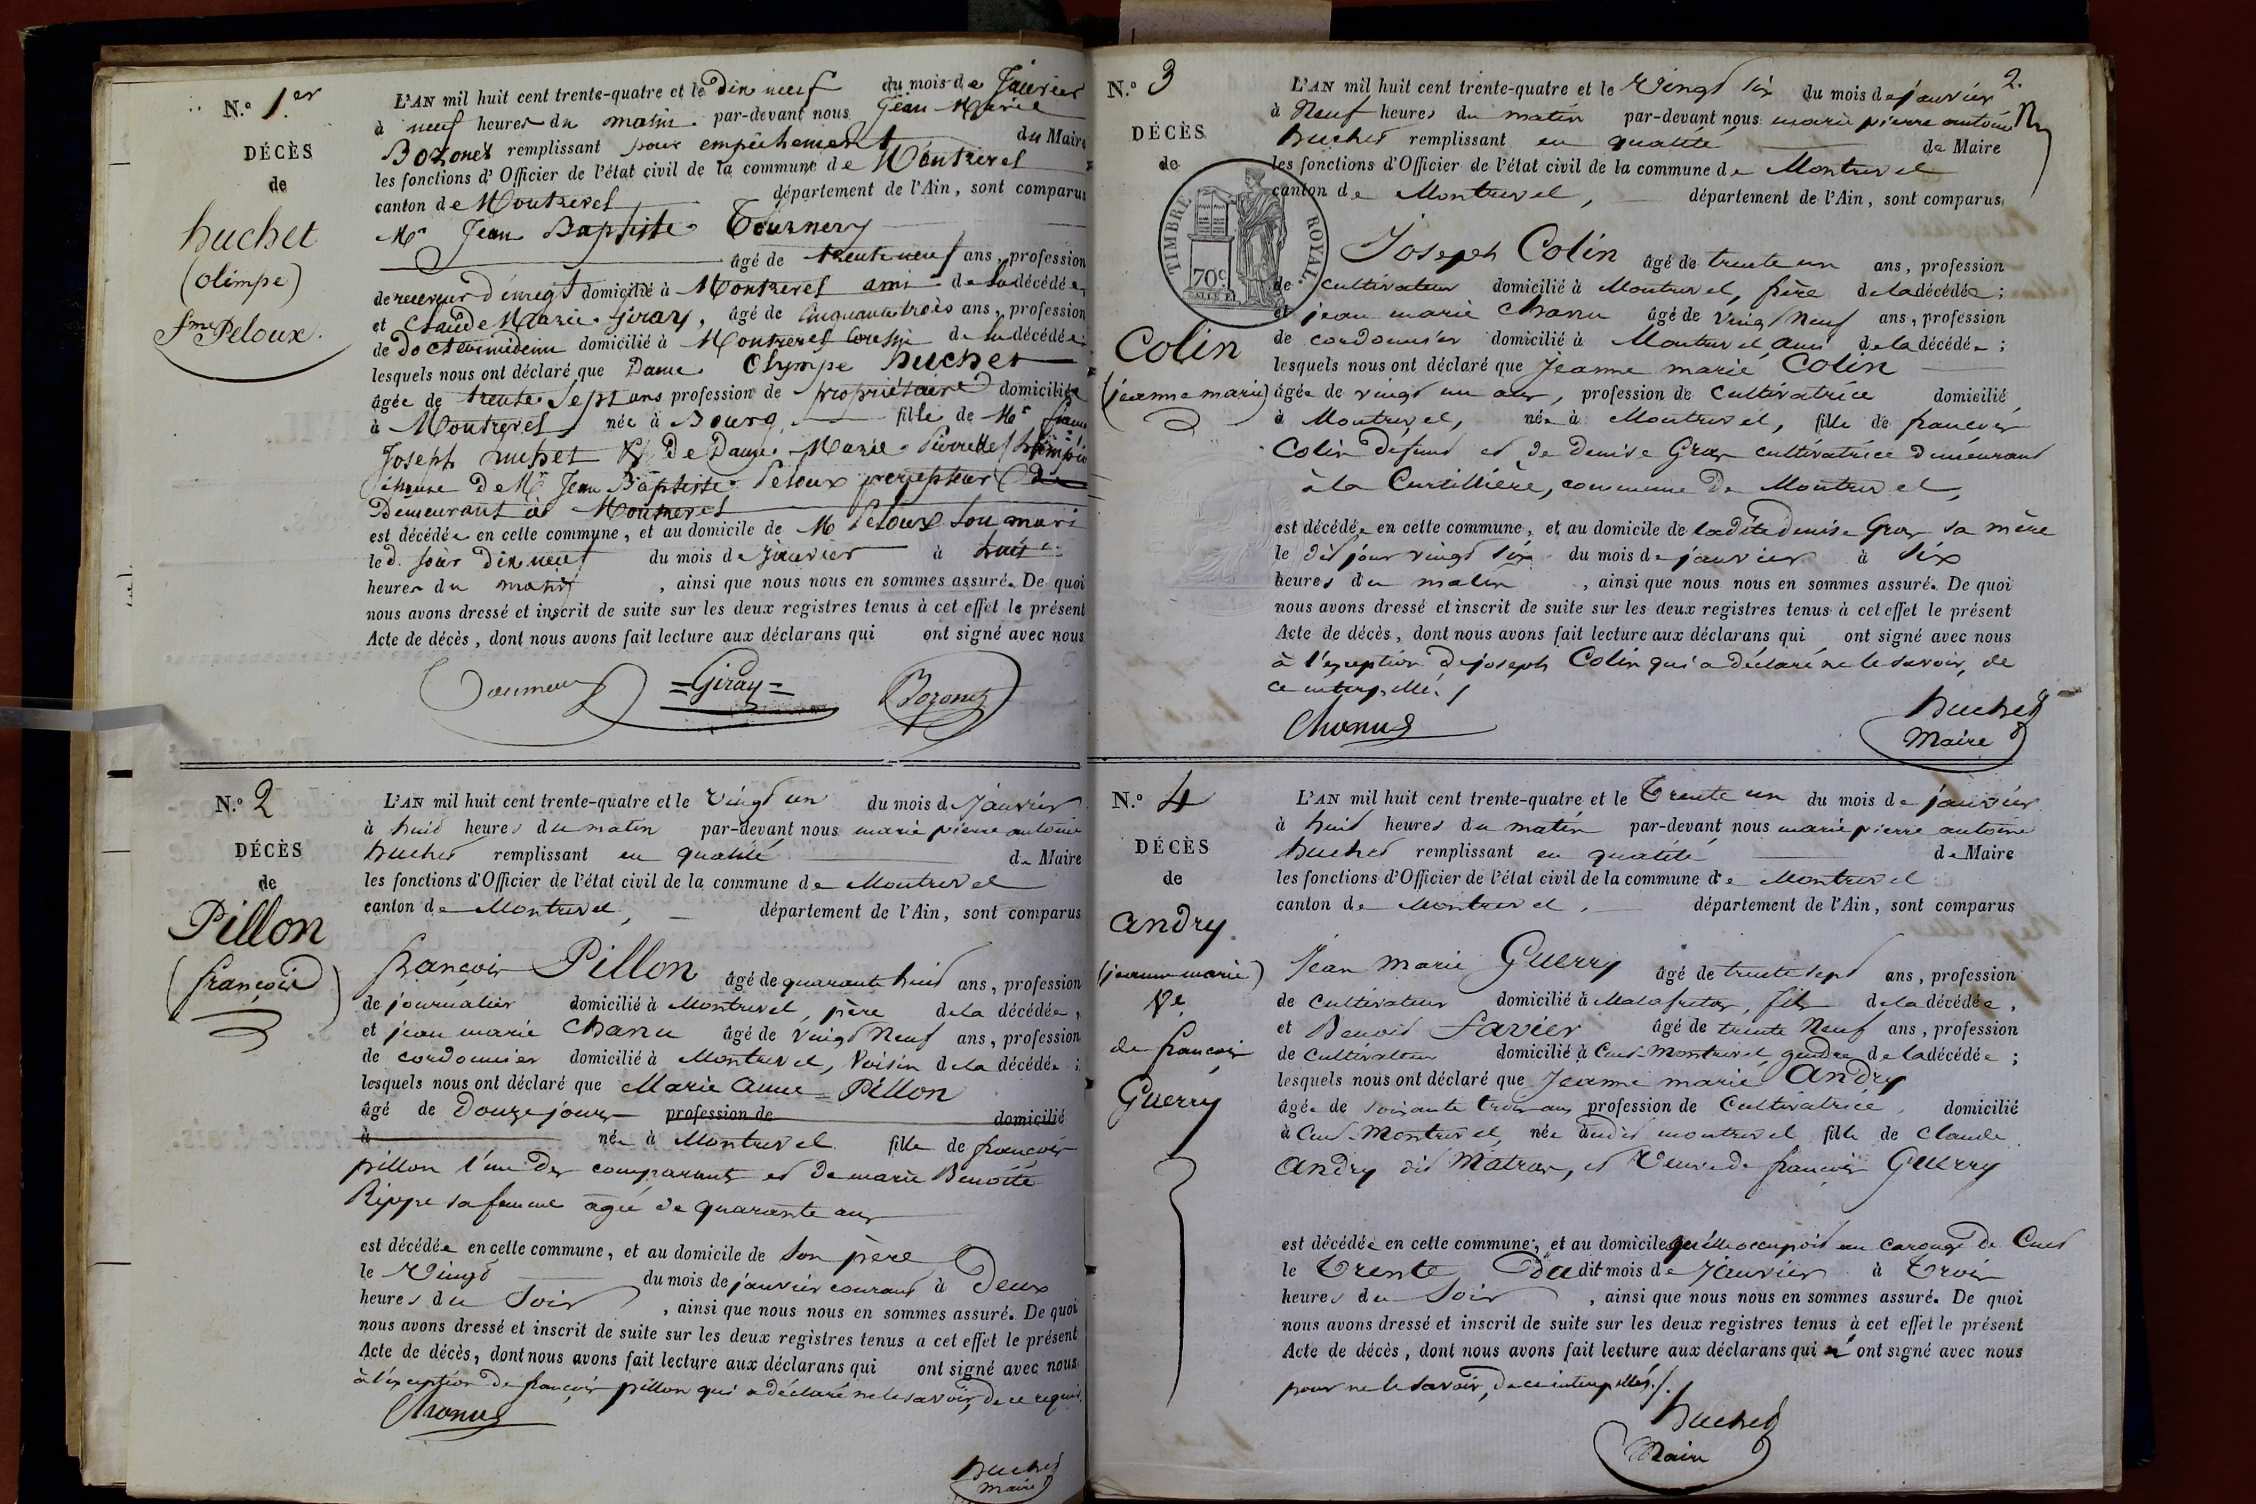 N.° 1er
DÉCÈS
de
huchet
(olimpe)
fme Peloux.
L'AN mil huit cent trente-quatre et le dix neuf du mois de Janvier
à neuf heures du matin par-devant nous Jean Marie
Bozonet remplissant pour empêchement du Maire
les fonctions d'Officier de l'état civil de la commune de Montrevel
canton de Montrevel département de l'Ain, sont comparus
Mr Jean Baptiste
âgé de trente neuf ans, profession
de receveur d'enregt domicilié à Montrevel ami de la décédée,
et Claude Marie Giray, âgé de Cinquante trois ans, profession
de docteur médecin domicilié à Montrevel de la décédée;
lesquels nous ont déclaré que Dame Olympe huchet
âgée de trente Sept ans profession de propriétaire domiciliée
à Montrevel née à Bourg, fille de Mr
Joseph huchet & De Dame Marie Pierrette
épouse De Mr Jean Baptiste Peloux percepteur
Demeurant à Montrevel
est décédée en cette commune, et au domicile de M Peloux Son mari
le d. jour dix neuf du mois de Janvier à
heures du matin, ainsi que nous nous en sommes assuré. De quoi
nous avons dressé et inscrit de suite sur les deux registres tenus à cet effet le présent
Acte de décès, dont nous avons fait lecture aux déclarans qui ont signé avec nous
=Giray= Bozonet
N.° 2
DÉCÈS
de
Pillon
(françois)
L'AN mil huit cent trente-quatre et le vingt un du mois de Janvier
à huit heures du matin par-devant nous marie pierre antoine
huchet remplissant en qualité de Maire
les fonctions d'Officier de l'état civil de la commune de Montrevel
canton de Montrevel, département de l'Ain, sont comparus
françois Pillon âgé de quarante huit ans, profession
de journalier domicilié à Montrevel, père de la décédée,
et jean marie Chanu âgé de vingt Neuf ans, profession
de cordonnier domicilié à Montrevel, Voisin de la décédée;
lesquels nous ont déclaré que Marie Anne Pillon
âgé de Douze jours profession de domicilié
à née à Montrevel fille de françois
pillon l'un des comparants et de marie Benoite
Rippe sa femme agée de quarante ans
est décédée en cette commune, et au domicile de Son père
le Vingt du mois de janvier courant à Deux
heures du Soir, ainsi que nous nous en sommes assuré. De quoi
nous avons dressé et inscrit de suite sur les deux registres tenus à cet effet le présent
Acte de décès, dont nous avons fait lecture aux déclarans qui ont signé avec nous
à l'exception de françois pillon qui a déclaré ne le savoir, de ce requis.
Chanu
huchet
maire
2.
N.° 3
DÉCÈS
de
TIMBRE ROYAL
70c
Colin
(jeanne marie)
L'AN mil huit cent trente-quatre et le Vingt six du mois de janvier
à Neuf heures du matin par-devant nous marie pierre antoine
huchet remplissant en qualité de Maire
les fonctions d'Officier de l'état civil de la commune de Montrevel
canton de Montrevel, département de l'Ain, sont comparus
Joseph Colin âgé de trente un ans, profession
de cultivateur domicilié à Montrevel, frère de la décédée;
et jean marie Chanu âgé de vingt Neuf ans, profession
de cordonnier domicilié à Montrevel, ami de la décédée;
lesquels nous ont déclaré que Jeanne marie Colin
âgée de vingt un ans, profession de Cultivatrice domicilié
à Montrevel, née à Montrevel, fille de françois
Colin Defunt et de Denise Gras cultivatrice Demeurant
à la Curtillière, commune De Montrevel,
est décédée en cette commune, et au domicile de ladite denise Gras sa mère
le dit jour vingt six du mois de janvier à six
heures du matin, ainsi que nous nous en sommes assuré. De quoi
nous avons dressé et inscrit de suite sur les deux registres tenus à cet effet le présent
Acte de décès, dont nous avons fait lecture aux déclarans qui ont signé avec nous
à l'exception de joseph Colin qui a déclaré ne le savoir, de
ce interpellé.
Chanu
huchet
Maire
N.° 4
DÉCÈS
de
andry
(jeanne marie)
Ve
de françois
Guerry
L'AN mil huit cent trente-quatre et le Trente un du mois de janvier
à huit heures du matin par-devant nous marie pierre antoine
huchet remplissant en qualité de Maire
les fonctions d'Officier de l'état civil de la commune de Montrevel
canton de Montrevel, département de l'Ain, sont comparus
Jean Marie Guerry âgé de trente sept ans, profession
de Cultivateur domicilié à Malafretaz, fils de la décédée,
et Benoit Favier âgé de trente Neuf ans, profession
de Cultivateur domicilié à Cuet-Montrevel gendre de la décédée;
lesquels nous ont déclaré que Jeanne marie Andry
âgée de soixante trois ans profession de Cultivatrice, domicilié
à Cuet-Montrevel, née audit montrevel fille de Claude
andry dit Matras, et Veuve de françois Guerry
est décédée en cette commune, et au domicile qu'elle occupoit au carouge de Cuet
le Trente du dit mois de Janvier à Trois
heures du Soir, ainsi que nous nous en sommes assuré. De quoi
nous avons dressé et inscrit de suite sur les deux registres tenus à cet effet le présent
Acte de décès, dont nous avons fait lecture aux déclarans qui n'ont signé avec nous
pour ne le savoir, de ce interpellés.
huchet
Maire